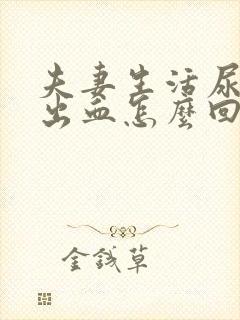 夫妻生活尿
出血怎麼回
金钱草